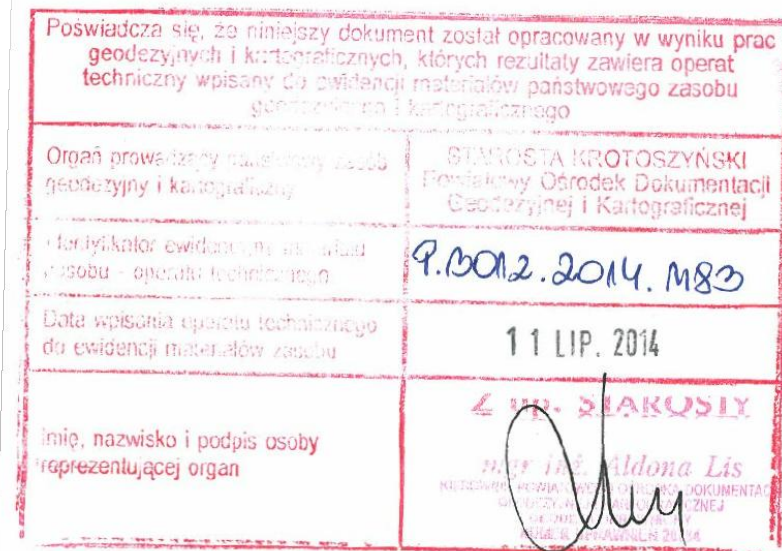 Poświadcza się, że niniejszy dokument został opracowany w wyniku prac
geodezyjnych i kartograficznych, których rezultaty zawiera operat
techniczny wpisany do ewidencji materiałów państwowego zasobu
geodezyjnego i kartograficznego
Organ prowadzący państwowy zasób
geodezyjny i kartograficzny
STAROSTA KROTOSZYŃSKI
Powiatowy Ośrodek Dokumentacji
Geodezyjnej i Kartograficznej
Identyfikator ewidencyjny materiału
zasobu - operatu technicznego
P.3012.2014.1183
Data wpisania operatu technicznego
do ewidencji materiałów zasobu
11 LIP. 2014
Imię, nazwisko i podpis osoby
reprezentującej organ
Z up. STAROSTY
mgr inż. Aldona Lis